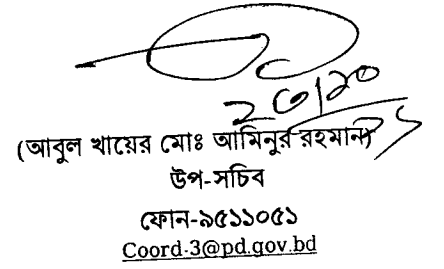 (আবুল খায়ের মোঃ আমিনুর রহমান)
উপ-সচিব
ফোন-৯৫১১০৫১
Coord-3@pd.gov.bd